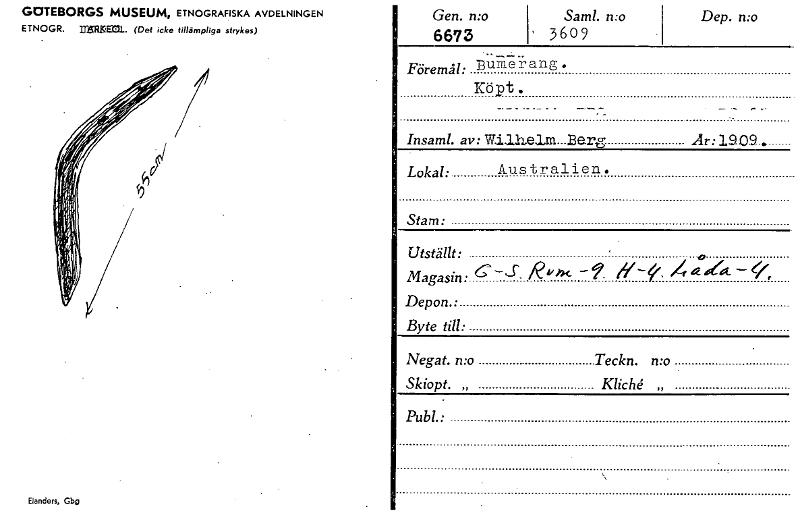 GÖTEBORGS MUSEUM, ETNOGRAFISKA AVDELNINGEN
ETNOGR. ARKEOL. (Det icke tillämpliga strykes)
55cm
Elanders, Gbg
Gen. n:o Saml. n:o Dep. n:o
6673 3609
Föremål: Bumerang.
Köpt.
Insaml. av: Wilhelm Berg År: 1909.
Lokal: Australien.
Stam:
Utställt:
Magasin: G-S. Rum-9. H-4. Låda-4.
Depon.:
Byte till:
Negat. n:o Teckn. n:o
Skiopt. „ Kliché „
Publ.: